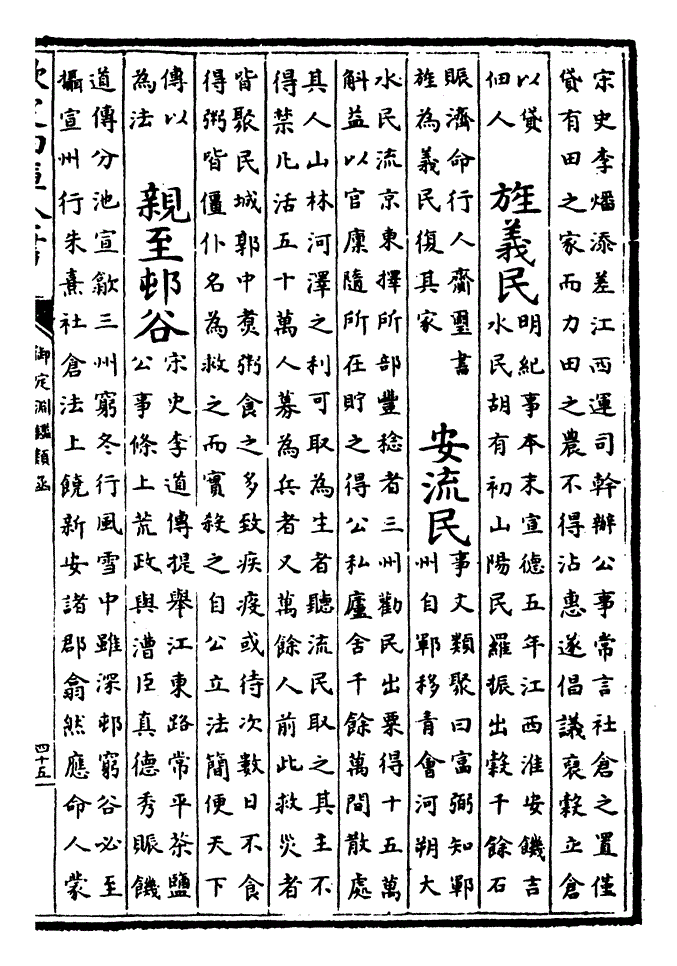 宋史李燔添差江西運司幹辦公事常言社倉之置僅
貸有田之家而力田之農不得沾惠遂倡議裒穀立倉
以貸
佃人
旌義民
明紀事本末宣德五年江西淮安饑吉
水民胡有初山陽民羅振出穀千餘石
賑濟命行人齎璽書
旌為義民復其家
安流民
事文類聚曰富弼知鄆
州自鄆移青會河朔大
水民流京東擇所部豐稔者三州勸民出粟得十五萬
斛益以官廩隨所在貯之得公私廬舍千餘萬間散處
其人山林河澤之利可取為生者聽流民取之其主不
得禁凡活五十萬人募為兵者又萬餘人前此救災者
皆聚民城郭中煑粥食之多致疾疫或待次數日不食
得粥皆僵仆名為救之而實殺之自公立法簡便天下
傳以
為法
親至邨谷
宋史李道傳提舉江東路常平茶鹽
公事條上荒政與漕臣真德秀賑饑
道傳分池宣歙三州窮冬行風雪中雖深邨窮谷必至
攝宣州行朱熹社倉法上饒新安諸郡翕然應命人蒙
欽定四庫全書
御定淵鑑類函
四十五